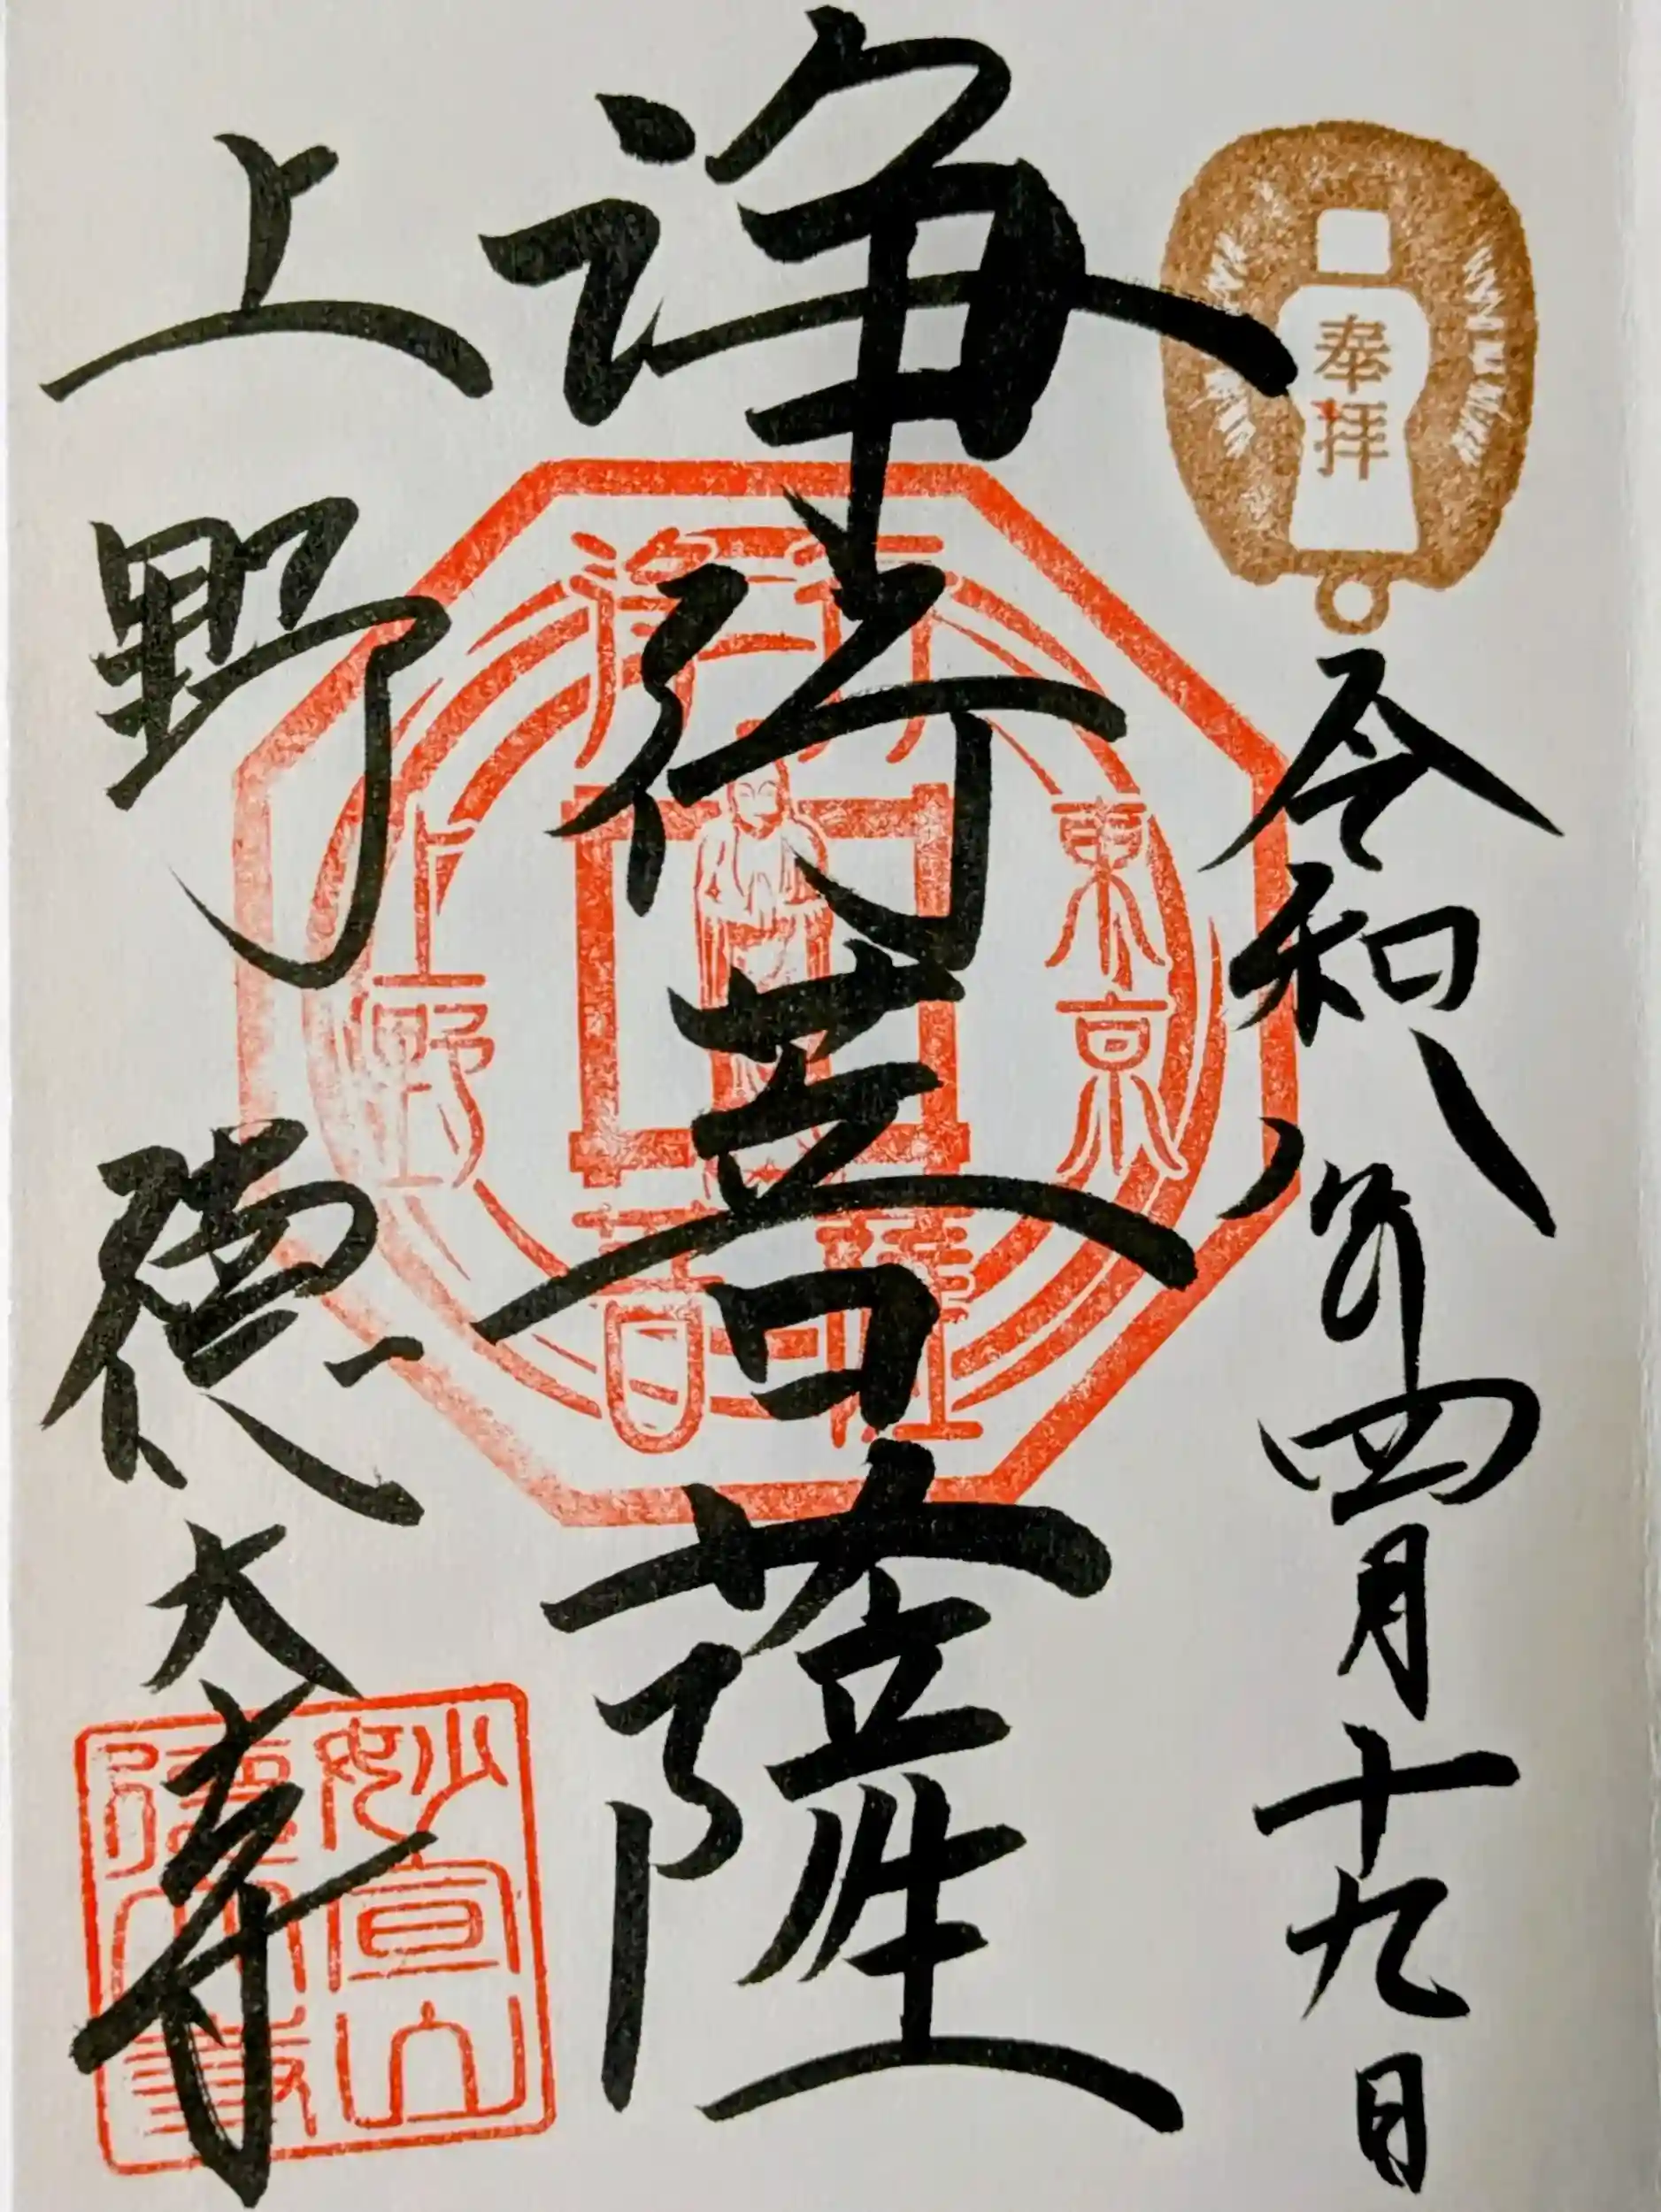 奉拝
令和八年四月十九日
浄行菩薩
東京
浄行
菩薩
上野
上野
徳大寺
妙宣山